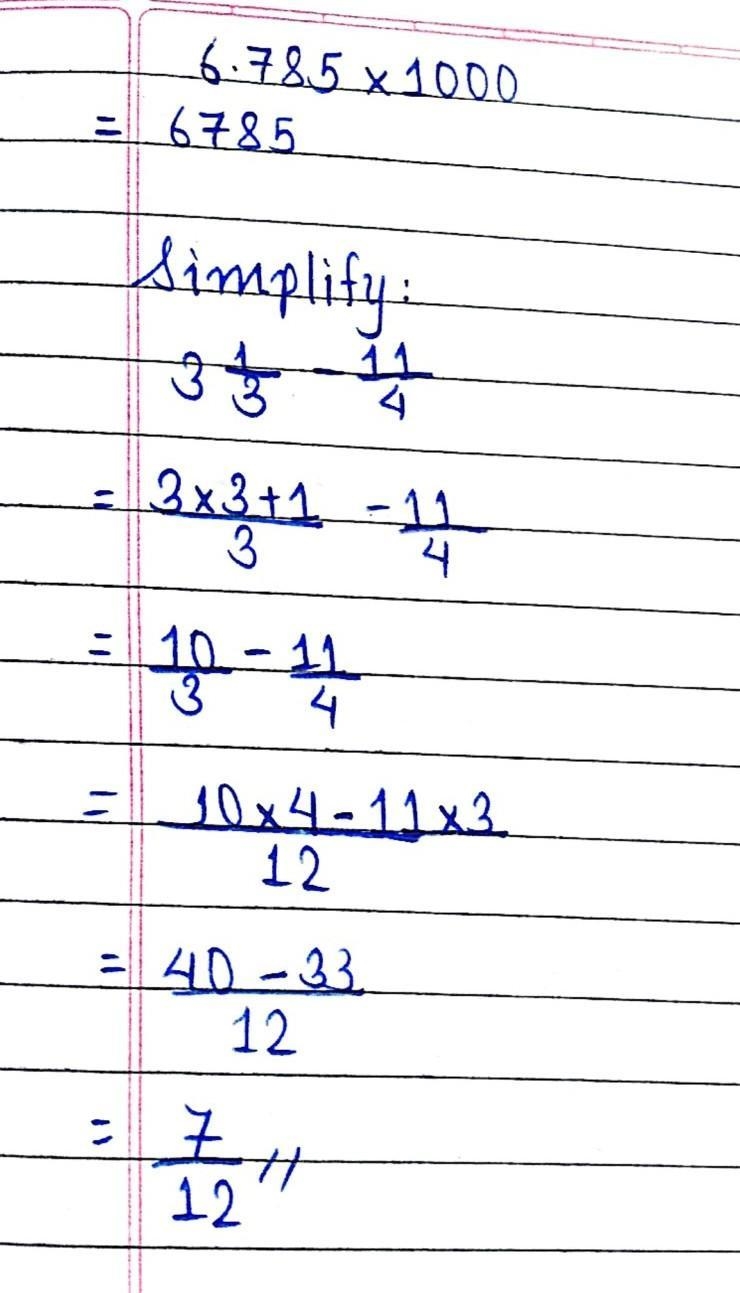 6.785 × 1000
= 6785
Simplify:
3 1/3 - 11/4
= (3×3+1)/3 - 11/4
= 10/3 - 11/4
= (10×4-11×3)/12
= (40-33)/12
= 7/12 //